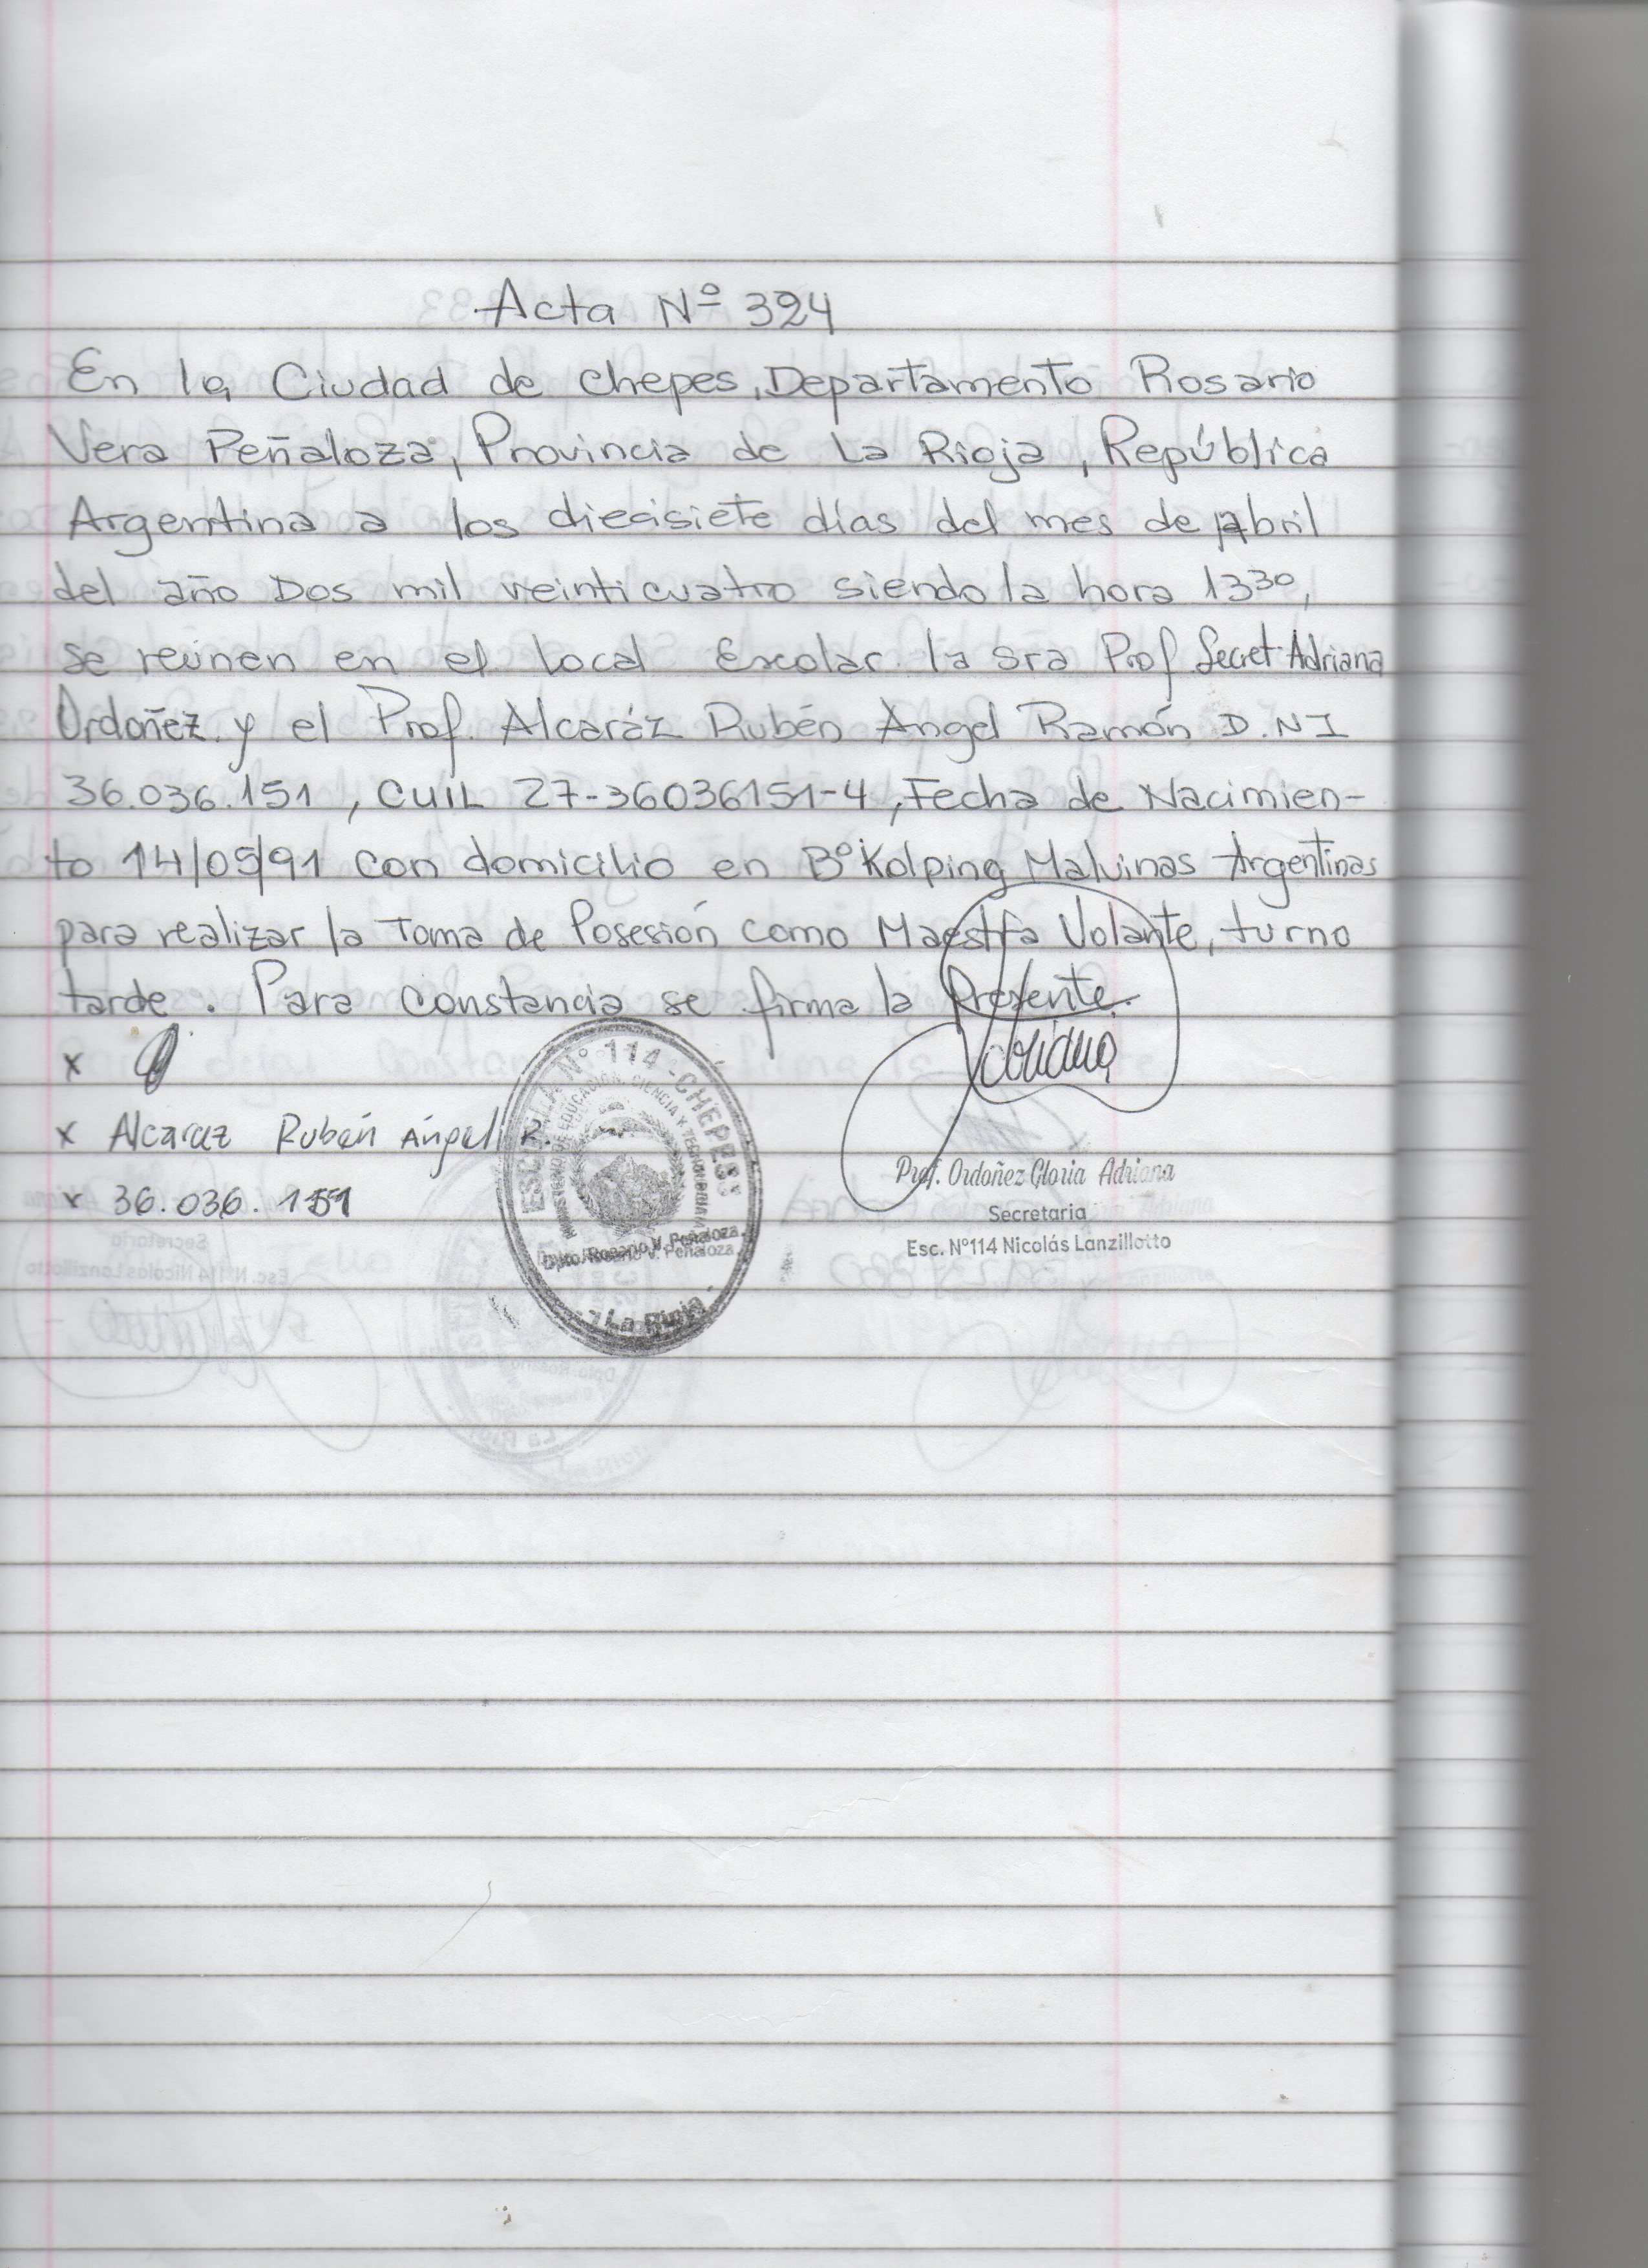 Acta Nº 324
En la Ciudad de Chepes, Departamento Rosario
Vera Peñaloza, Provincia de La Rioja, República
Argentina a los diecisiete días del mes de Abril
del año Dos mil veinticuatro siendo la hora 13³⁰,
se reúnen en el local Escolar la Sra Prof Secret Adriana
Ordoñez y el Prof. Alcaráz Rubén Angel Ramón D.NI
36.036.151, CUIL 27-36036151-4, Fecha de Nacimien-
to 14/05/91 con domicilio en Bº Kolping Malvinas Argentinas
para realizar la Toma de Posesión como Maestra Volante, turno
tarde. Para constancia se firma la Presente.
x
Adriana
x Alcaraz Rubén Ángel R.
x 36.036.151
ESCUELA Nº 114 - CHEPES
MINISTERIO DE EDUCACIÓN, CIENCIA Y TECNOLOGÍA
Dpto. Rosario V. Peñaloza
La Rioja
Prof. Ordoñez Gloria Adriana
Secretaria
Esc. Nº114 Nicolás Lanzillotto